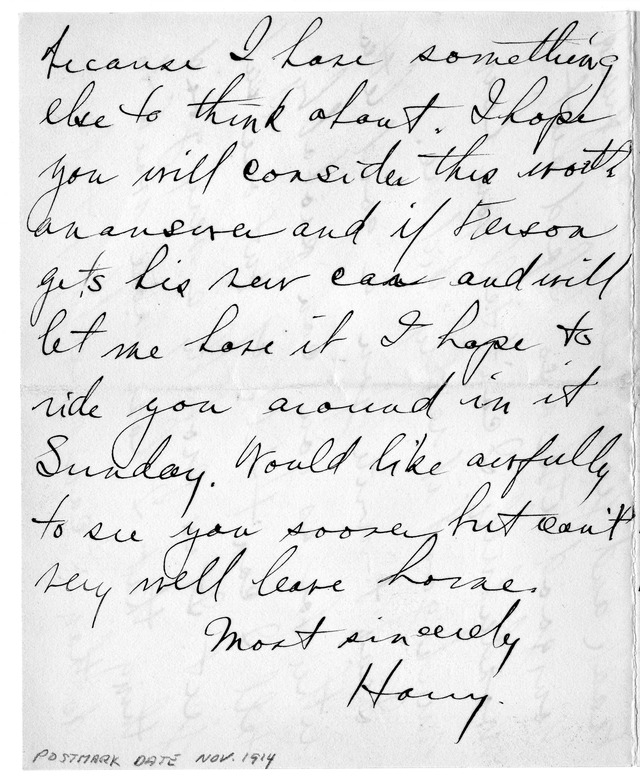 because I have something
else to think about. I hope
you will consider this worth
an answer and if Pierson
gets his new car and will
let me have it I hope to
ride you around in it
Sunday. Would like awfully
to see you sooner but can't
very well leave home.
Most sincerely
Harry.
POSTMARK DATE NOV. 1914